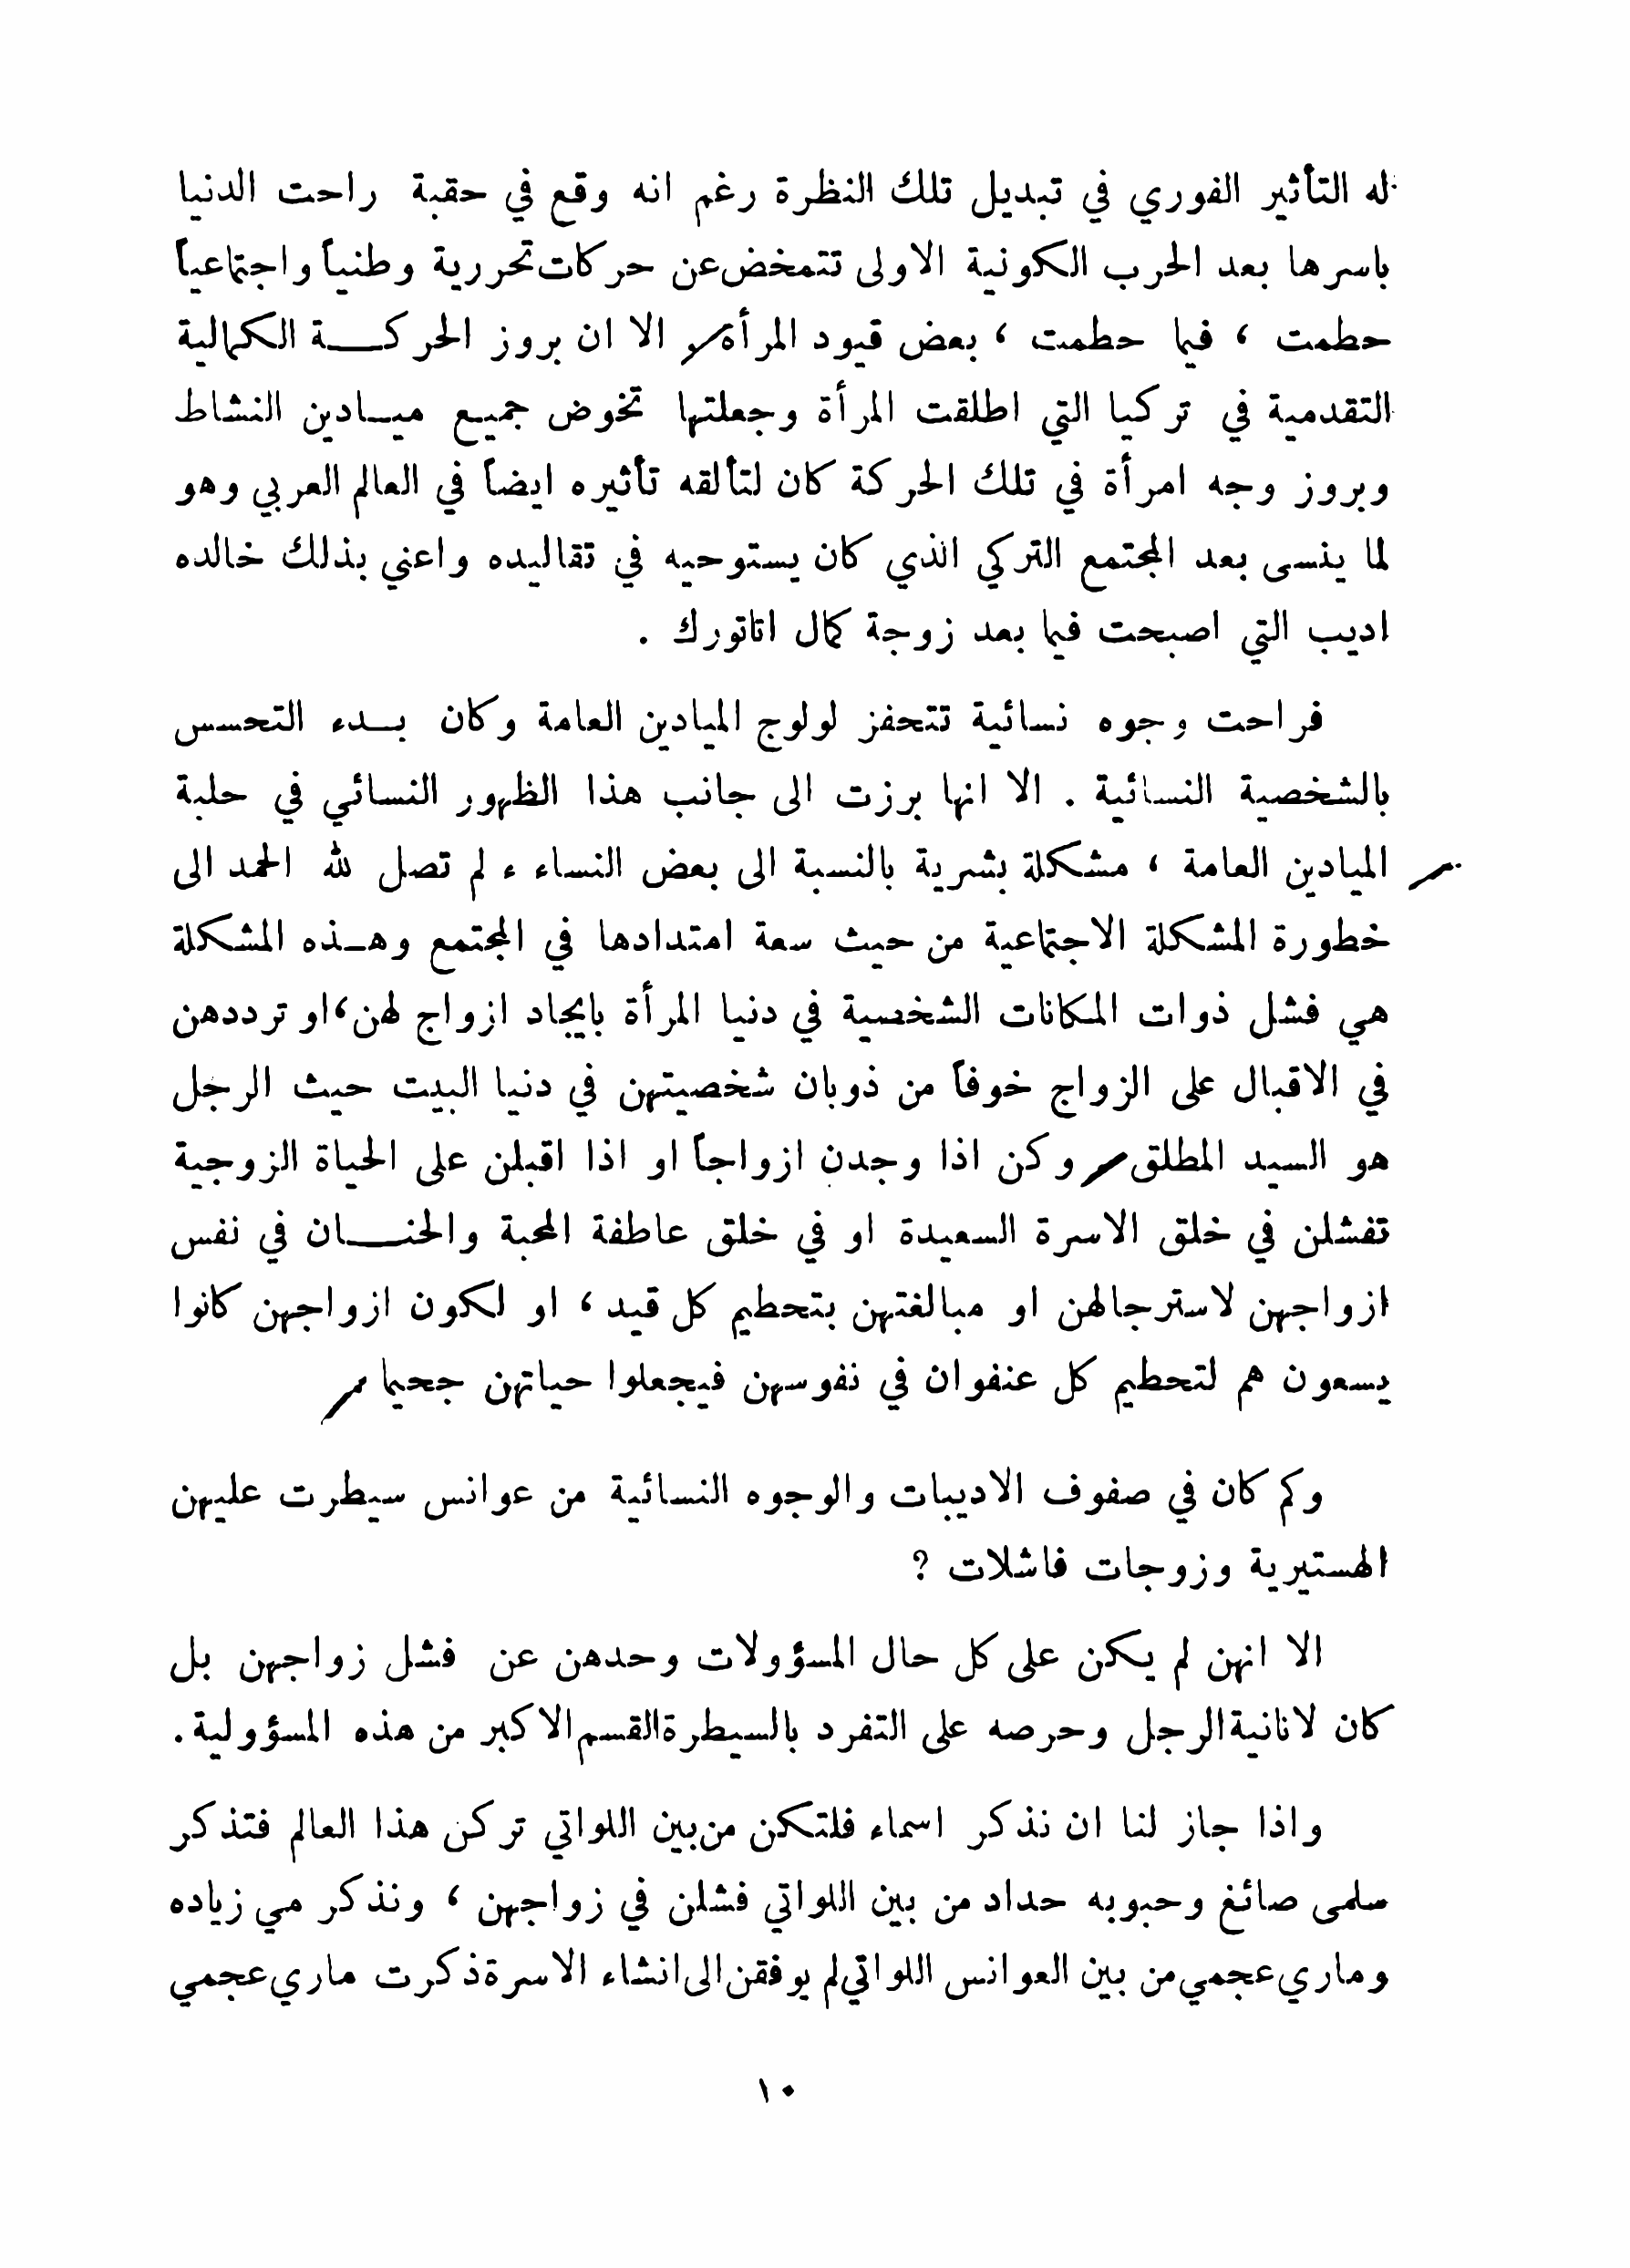 له التأثير الفوري في تبديل تلك النظرة رغم انه وقع في حقبة راحت الدنيا
باسرها بعد الحرب الكونية الاولى تتمخض عن حركات تحررية وطنياً واجتماعياً
حطمت ، فيما حطمت ، بعض قيود المرأة الا ان بروز الحركة الكمالية
التقدمية في تركيا التي اطلقت المرأة وجعلتها تخوض جميع ميادين النشاط
وبروز وجه امرأة في تلك الحركة كان لتألقه تأثيره ايضاً في العالم العربي وهو
لما ينسى بعد المجتمع التركي الذي كان يستوحيه في تقاليده واعني بذلك خالده
اديب التي اصبحت فيما بعد زوجة كمال اتاتورك .
فراحت وجوه نسائية تتحفز لولوج الميادين العامة وكان بدء التحسس
بالشخصية النسائية . الا انها برزت الى جانب هذا الظهور النسائي في حلبة
الميادين العامة ، مشكلة بشرية بالنسبة الى بعض النساء ، لم تصل لله الحمد الى
خطورة المشكلة الاجتماعية من حيث سعة امتدادها في المجتمع وهذه المشكلة
هي فشل ذوات المكانات الشخصية في دنيا المرأة بايجاد ازواج لهن ، او ترددهن
في الاقبال على الزواج خوفاً من ذوبان شخصيتهن في دنيا البيت حيث الرجل
هو السيد المطلق وكن اذا وجدن ازواجاً او اذا اقبلن على الحياة الزوجية
تفشلن في خلق الاسرة السعيدة او في خلق عاطفة المحبة والحنان في نفس
ازواجهن لاسترجالهن او مبالغتهن بتحطيم كل قيد ، او لكون ازواجهن كانوا
يسعون هم لتحطيم كل عنفوان في نفوسهن فيجعلوا حياتهن جحيما
وكم كان في صفوف الاديبات والوجوه النسائية من عوانس سيطرت عليهن
الهستيرية وزوجات فاشلات ?
الا انهن لم يكن على كل حال المسؤولات وحدهن عن فشل زواجهن بل
كان لانانية الرجل وحرصه على التفرد بالسيطرة القسم الاكبر من هذه المسؤولية .
واذا جاز لنا ان نذكر اسماء فلتكن من بين اللواتي تركن هذا العالم فتذكر
سلمى صائغ وحبوبه حداد من بين اللواتي فشلن في زواجهن ، ونذكر مي زياده
وماري عجمي من بين العوانس اللواتي لم يوفقن الى انشاء الاسرة ذكرت ماري عجمي
١٠